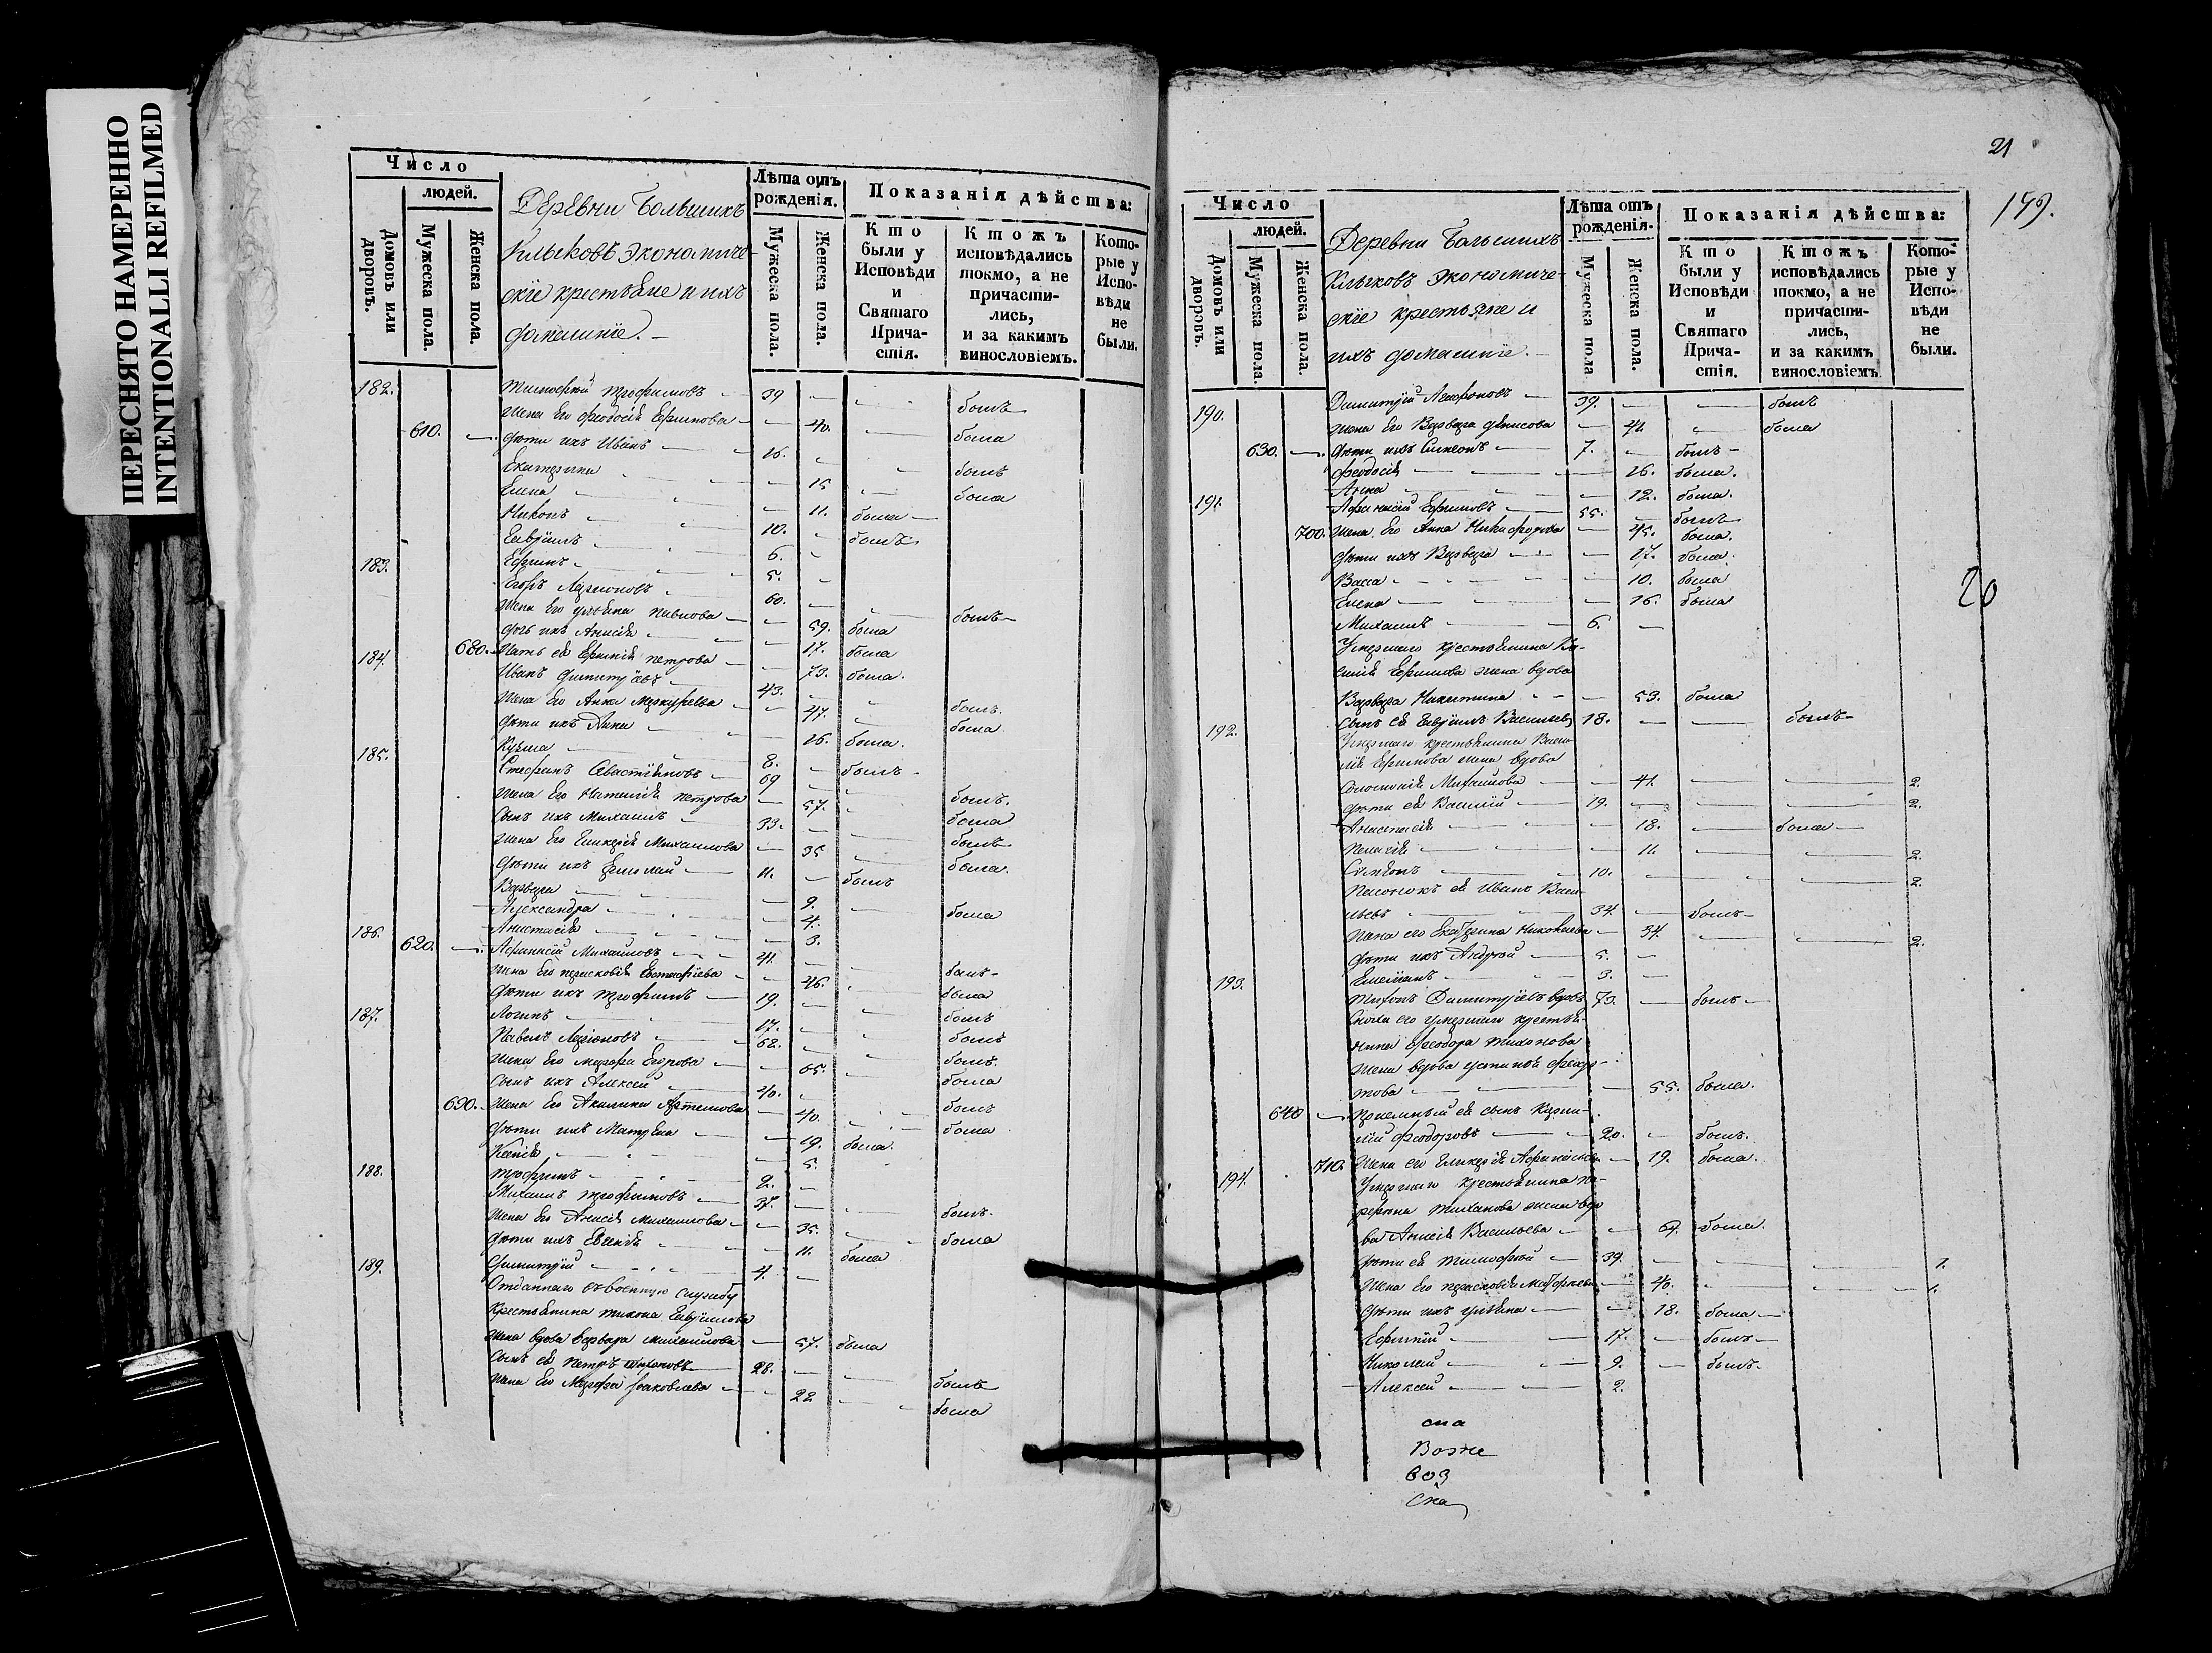 ПЕРЕСНЯТО НАМЕРЕННО
INTENTIONALLI REFILMED
Число
людей.
Домовъ или дворовъ.
Мужеска пола.
Женска пола.
Деревни Большихъ
Клыковъ экономиче-
скіе крестьяне и ихъ
домашніе.
Лѣта отъ рожденія.
Мужеска пола.
Женска пола.
Показанія дѣйства:
Кто были у Исповѣди и Святаго Причастія.
Ктожъ исповѣдались токмо, а не причасти-лись, и за какимъ винословіемъ.
Кото-рые у Испо-вѣди не были.
182. Тимофей Трофимовъ 39 былъ
жена его Феодосія Ефимова 40. была
610. дѣти ихъ Иванъ 16. былъ
Екатерина 15 была
Елена 11. была
Никонъ 10. былъ
Гавріилъ 6.
Ефимъ 5.
183. Егоръ Ларіоновъ 60. былъ
жена его Ульяна Павлова 59. была
дочь ихъ Анисія 17. была
680. мать ея Ефимія Петрова 73. была.
184. Иванъ Димитріевъ 43. былъ.
жена его Анна Меркурьева 47. была
дѣти ихъ Анна 16. была.
Кузьма 8. былъ
185. Стефанъ Савастьяновъ 69 былъ.
жена его Наталія Петрова 57. была
сынъ ихъ Михаилъ 33. былъ
жена его Гликерія Михаилова 35 была.
дѣти ихъ Ермолай 11. былъ
Варвара 9. была
Александра 4.
Анастасія 3.
186. 620. Афанасій Михаиловъ 41. былъ
жена его Парасковія Евстафіева 46. была
дѣти ихъ Трофимъ 19. былъ
Логинъ 17. былъ
187. Павелъ Ларіоновъ 62. былъ.
жена его Марфа Егорова 65. была
сынъ ихъ Алексей 40. былъ
690. жена его Акилина Артемова 40. была
дѣти ихъ Матрена 19. была.
Ксенія 5.
Трофимъ 2.
188. Михаилъ Трофимовъ 37. былъ.
жена его Анисія Михаилова 35. была
дѣти ихъ Евгенія 11. была
Димитрій 4.
189. Отданнаго въ военную службу
крестьянина Тихона Гавріилова
жена вдова Варвара Михайлова 57. была
сынъ ея Петръ Тихоновъ 28. былъ
жена его Марфа Іаковлева 22 была
21
159.
20
Число
людей.
Домовъ или дворовъ.
Мужеска пола.
Женска пола.
Деревни Большихъ
Клыковъ экономиче-
скіе крестьяне и
ихъ домашніе.
Лѣта отъ рожденія.
Мужеска пола
Женска пола.
Показанія дѣйства:
Кто были у Исповѣди и Святаго Прича-стія.
Ктожъ исповѣдались токмо, а не причасти-лись, и за какимъ винословіемъ.
Кото-рые у Испо-вѣди не были.
190. Димитрій Агафоновъ 39. былъ
жена его Варвара Денисова 41. была
630. дѣти ихъ Симеонъ 7. былъ
Феодосія 16. была.
Анна 12. была.
191. Афанасій Ефимовъ 55. былъ
700. жена его Анна Никифорова 45. была.
дѣти ихъ Варвара 17. была.
Васса 10. была
Елена 16. была
Михаилъ 6.
Умершаго крестьянина Ва-
силія Ефимова жена вдова
Варвара Никитина 53. была
сынъ ея Гавріилъ Васильевъ 18. былъ
192. Умершаго крестьянина Васи-
лія Ефимова жена вдова
Соломонія Михайлова 41. 2.
дѣти ея Василій 19. 2.
Анастасія 18. была
Пелагія 11. 2.
Симеонъ 10. 2.
Пасынокъ ея Иванъ Васи-
льевъ 34. былъ
жена его Екатерина Николаева 34. 2.
дѣти ихъ Андрей 5.
Емеліанъ 3.
193. Тихонъ Димитріевъ вдовъ 73. былъ
Сноха его умершаго крестья-
нина Феодора Тихонова
жена вдова Устинія
55. была.
640 Пріемный ея сынъ
Феодоровъ 20. былъ.
710. жена его Гликерія Афанасьева 19. была.
194. Умершаго крестьянина
Тихонова жена вдо-
ва Анисія Васильева 64. была.
дѣти ея Тимофей 39. 1.
жена его Парасковія Матфеева 40. 1.
дѣти ихъ Ульяна 18. была
Ефимій 17. былъ
Николай 9. былъ
Алексей 2.